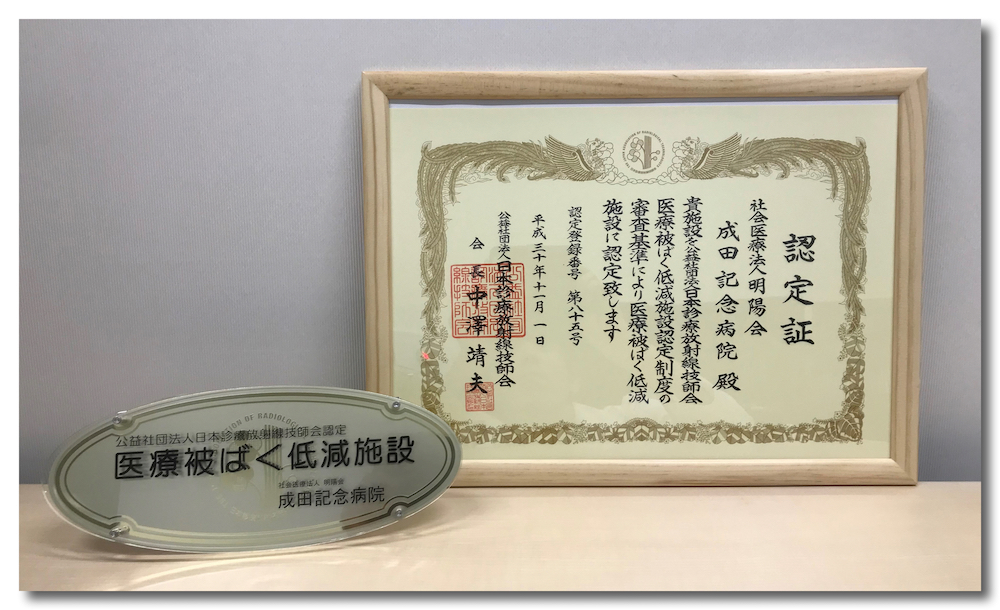 認定証
社会医療法人明陽会
成田記念病院 殿
貴施設を公益社団法人日本診療放射線技師会
医療被ばく低減施設認定制度の
審査基準により医療被ばく低減
施設に認定致します
認定登録番号 第八十五号
平成三十年十一月一日
公益社団法人日本診療放射線技師会
会長 中澤靖夫
公益社団法人日本診療放射線技師会認定
医療被ばく低減施設
社会医療法人 明陽会
成田記念病院